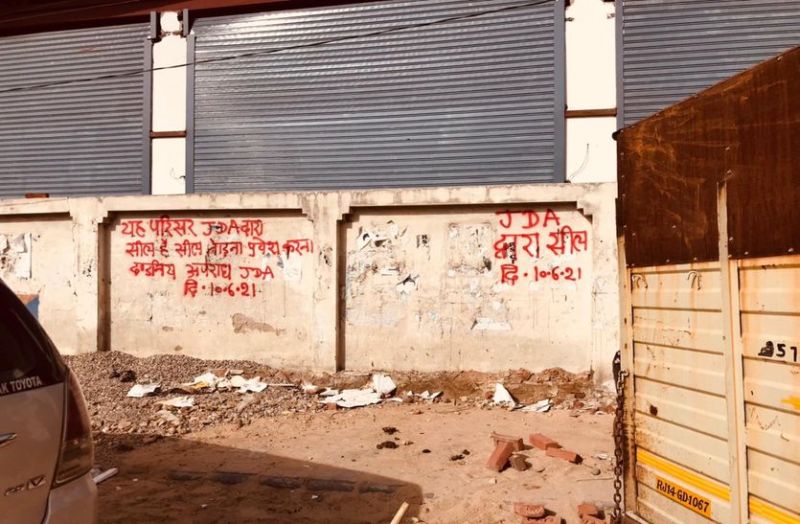 यह परिसर JDA द्वारा
सील है सील तोड़ना प्रवेश करना
दण्डनिय अपराध JDA
दि. 10.6.21
JDA
द्वारा सील
दि. 10.6.21
TOYOTA
RJ14-GD-1067